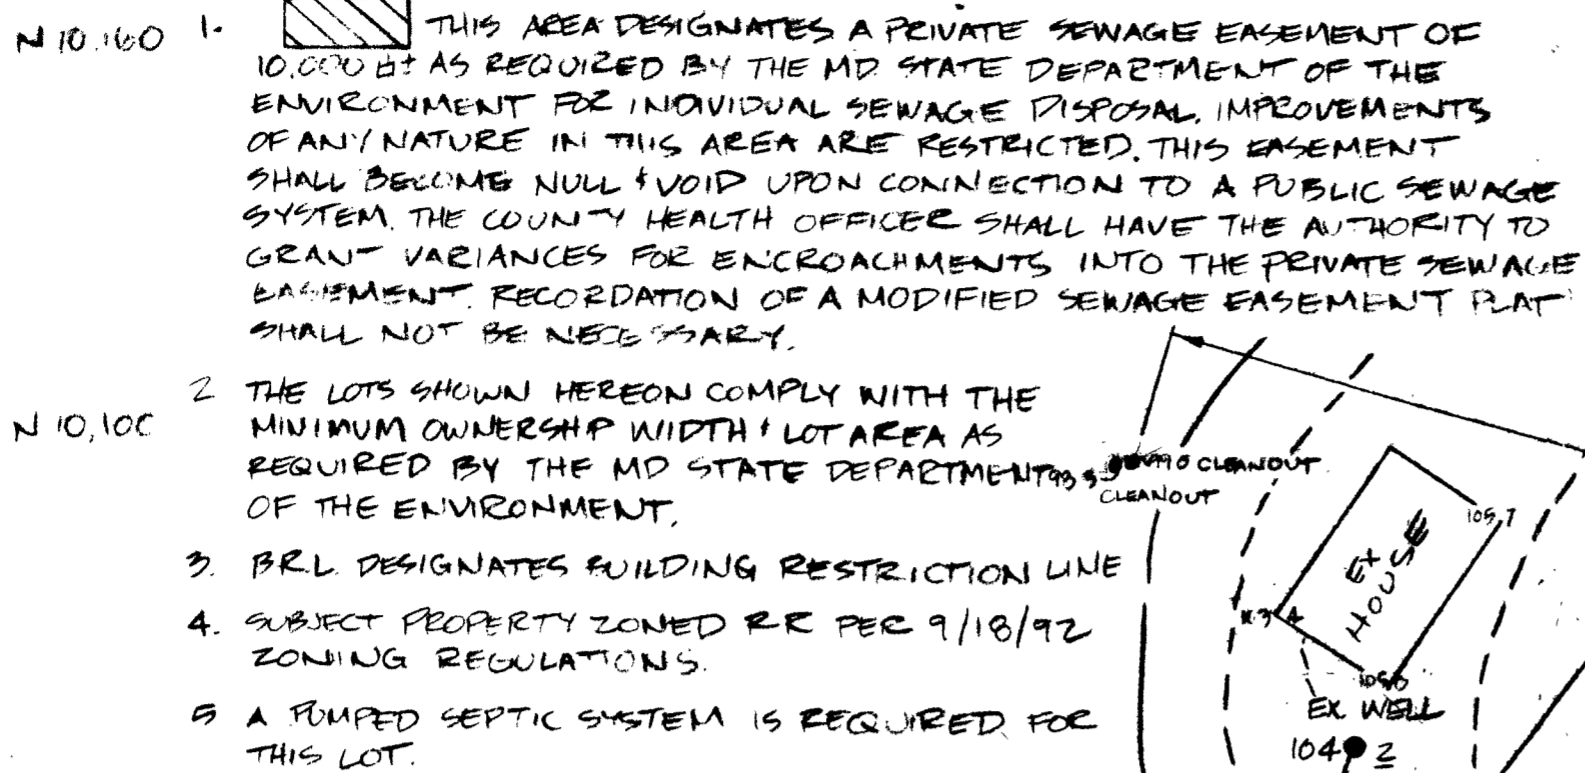 N 10,160
1. THIS AREA DESIGNATES A PRIVATE SEWAGE EASEMENT OF
10,000 □± AS REQUIRED BY THE MD. STATE DEPARTMENT OF THE
ENVIRONMENT FOR INDIVIDUAL SEWAGE DISPOSAL. IMPROVEMENTS
OF ANY NATURE IN THIS AREA ARE RESTRICTED. THIS EASEMENT
SHALL BECOME NULL & VOID UPON CONNECTION TO A PUBLIC SEWAGE
SYSTEM. THE COUNTY HEALTH OFFICER SHALL HAVE THE AUTHORITY TO
GRANT VARIANCES FOR ENCROACHMENTS INTO THE PRIVATE SEWAGE
EASEMENT. RECORDATION OF A MODIFIED SEWAGE EASEMENT PLAT
SHALL NOT BE NECESSARY.
N 10,100
2 THE LOTS SHOWN HEREON COMPLY WITH THE
MINIMUM OWNERSHIP WIDTH & LOT AREA AS
REQUIRED BY THE MD STATE DEPARTMENT
OF THE ENVIRONMENT.
3. B.R.L. DESIGNATES BUILDING RESTRICTION LINE
4. SUBJECT PROPERTY ZONED RR PER 9/18/92
ZONING REGULATIONS.
5 A PUMPED SEPTIC SYSTEM IS REQUIRED FOR
THIS LOT.
CLEANOUT
CLEANOUT
105.7
EX
HOUSE
EX WELL
104 2